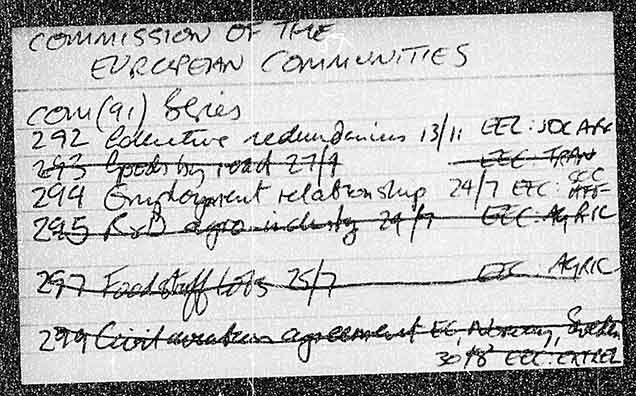 COMMISSION OF THE
EUROPEAN COMMUNITIES
COM(91) Series
292 Collective redundancies 13/11 EEC: SOC AFF
293 Goods by road 27/9 EEC TRAN
294 Employment relationship 24/7 EEC: SOC AFF
295 R&D agro-industry 24/7 EEC: AGRIC
297 Foodstuff lots 25/7 EEC: AGRIC
299 Civil aviation agreement EC, Norway, Sweden
30/8 EEC: EXTREL